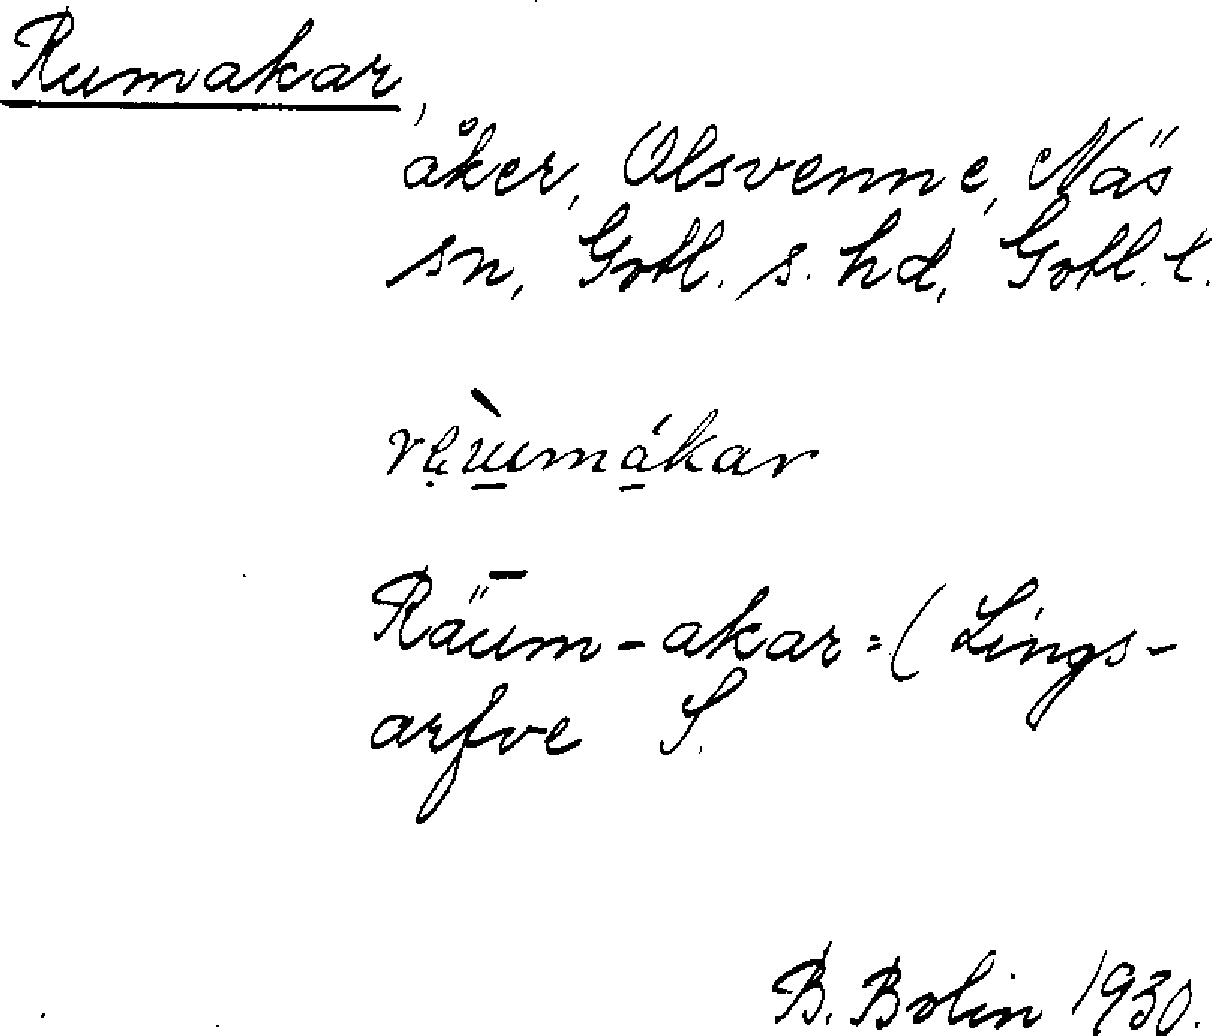 Rumakar,
åker, Olsvenne, Näs
sn, Gotl. s. hd, Gotl. l.
Räum-akar = ( Lings-
arfve S.
B. Bolin 1930.